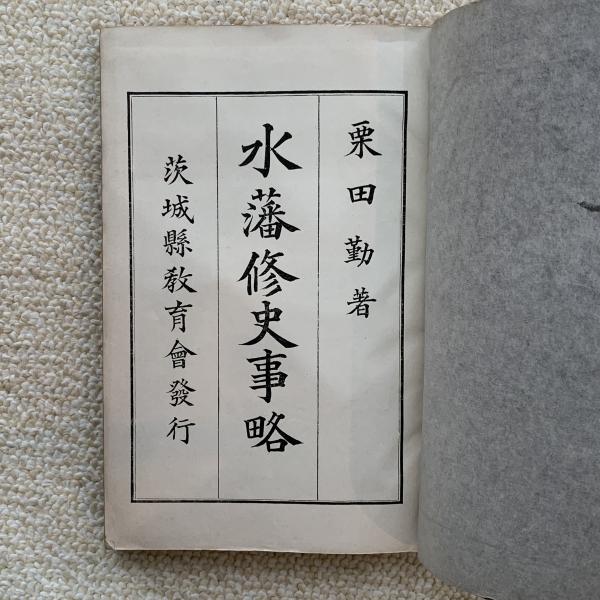 栗田勤著
水藩修史事略
茨城縣教育會發行